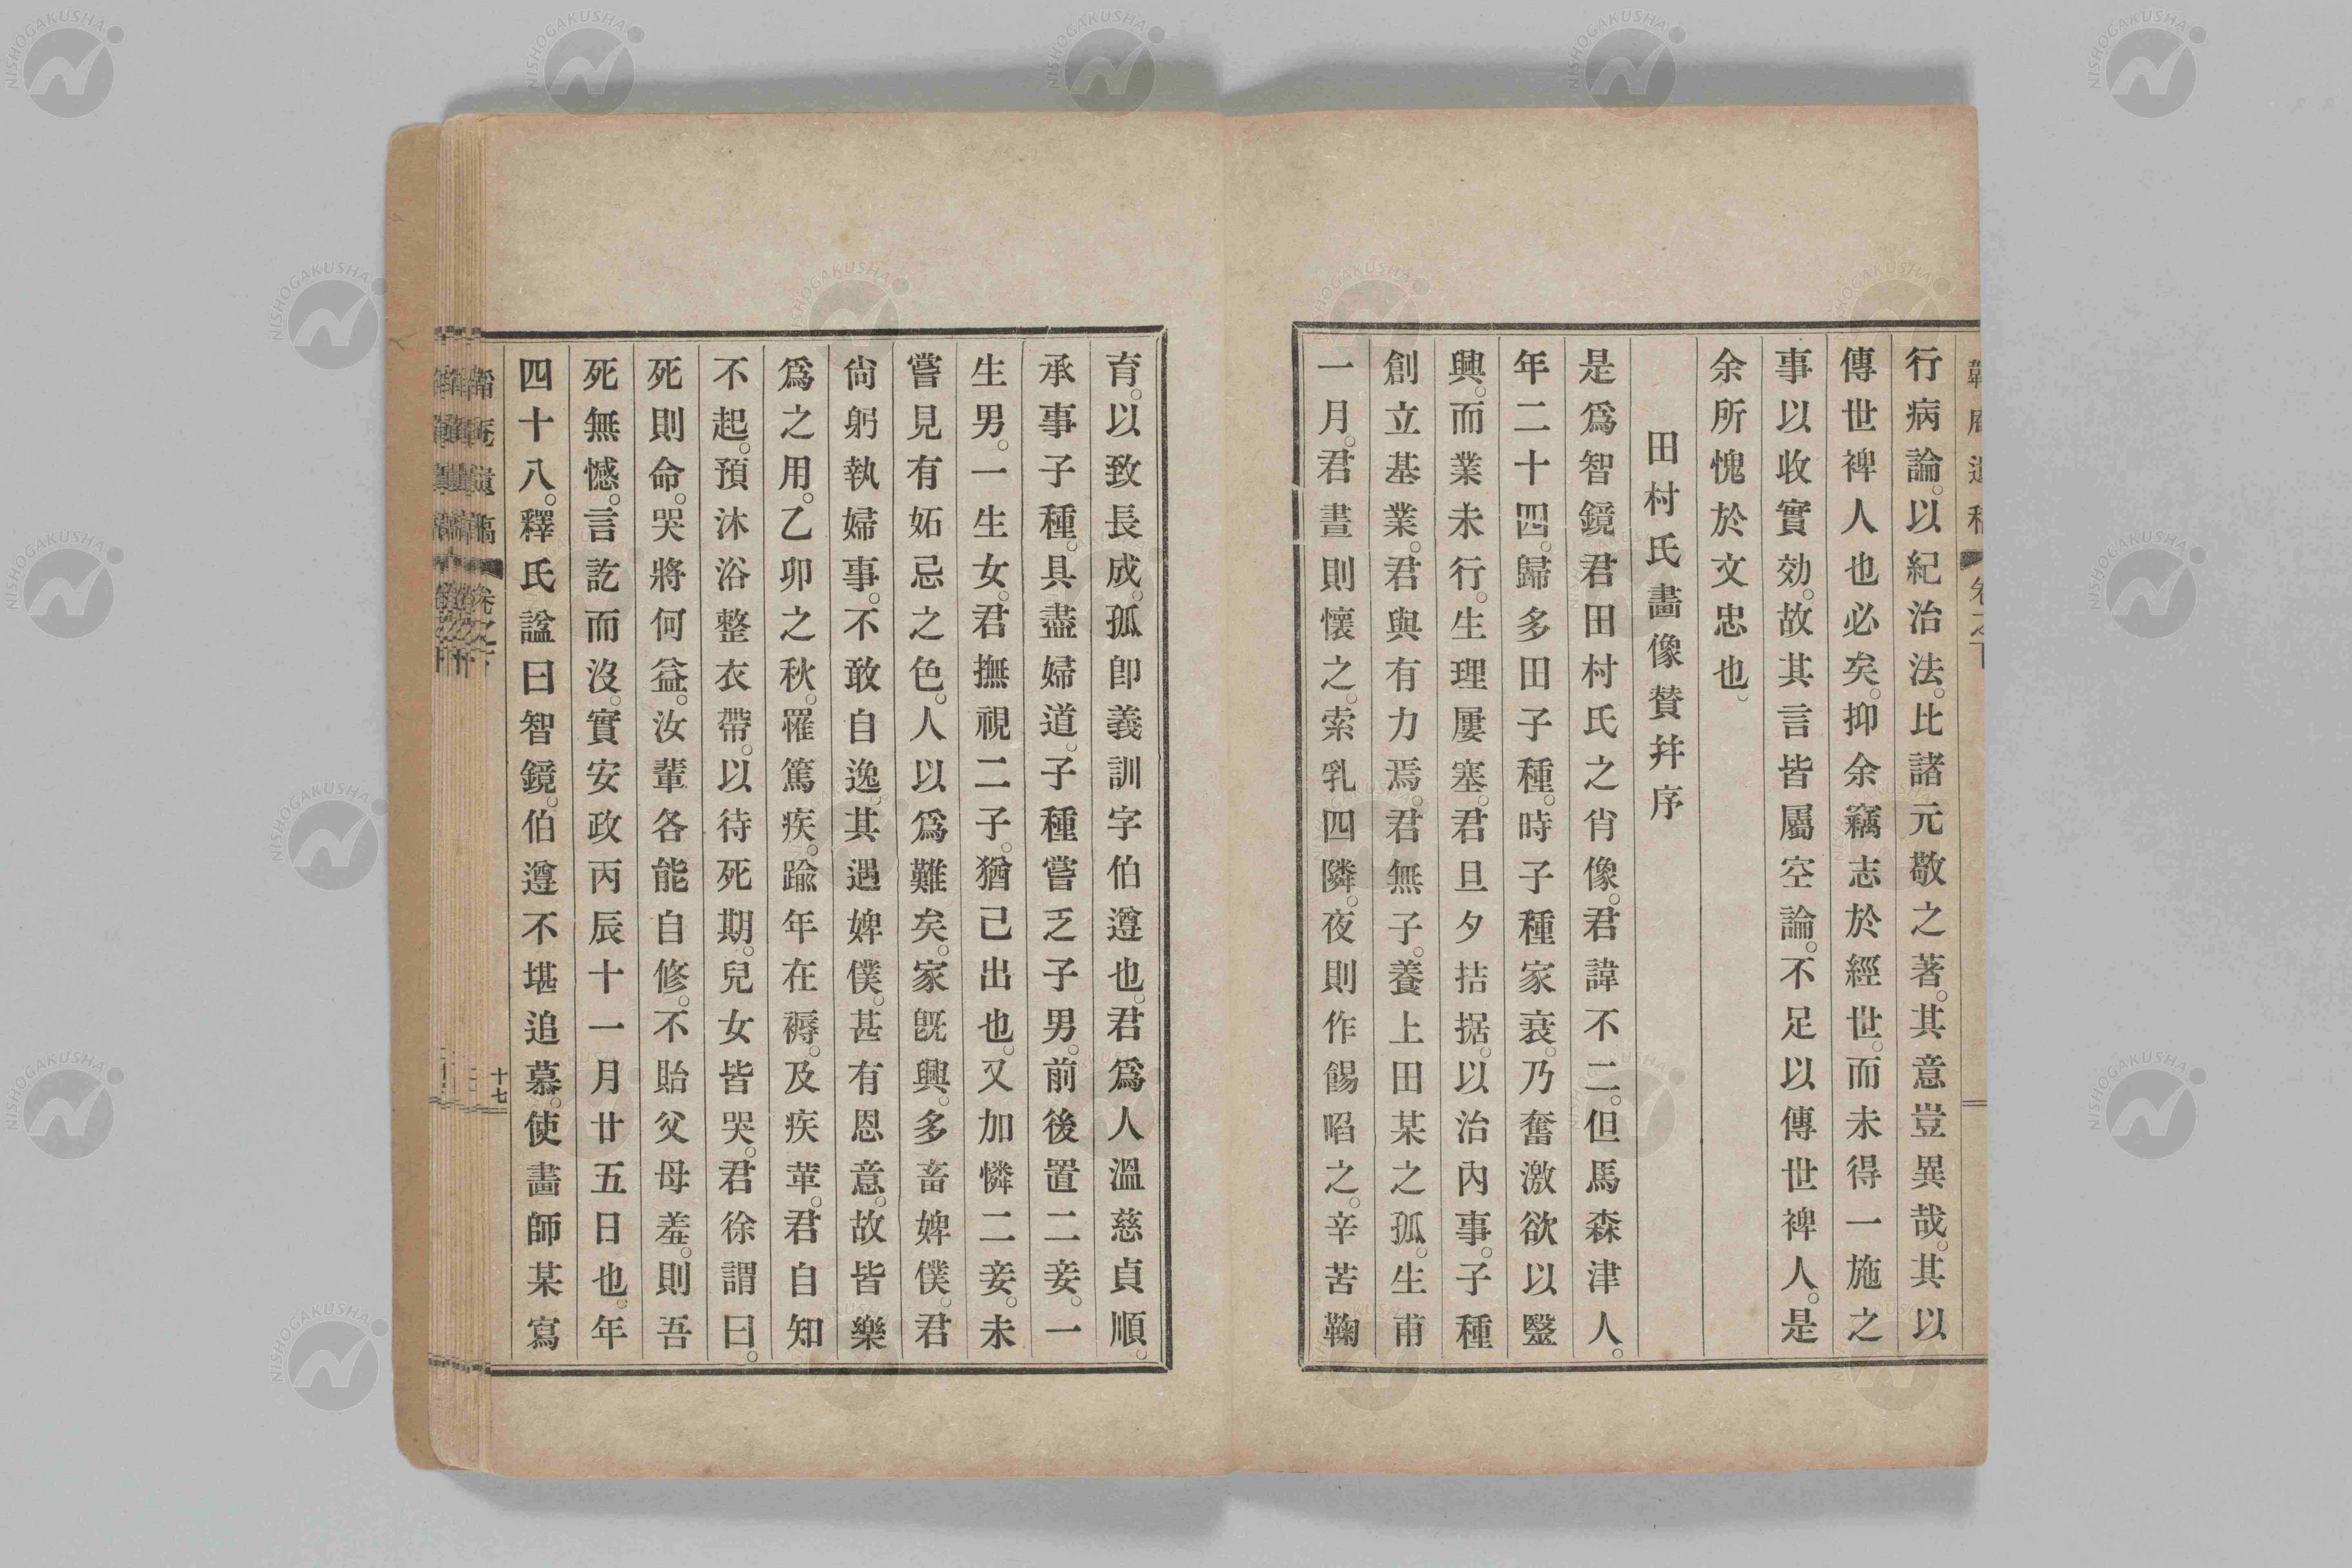 行病論。以紀治法。比諸元敬之著。其意豈異哉。其以
傳世裨人也必矣。抑余竊志於經世。而未得一施之
事以收實効。故其言皆屬空論。不足以傳世裨人。是
余所愧於文忠也。
田村氏畵像賛幷序
是爲智鏡君田村氏之肖像。君諱不二。但馬森津人。
年二十四。歸多田子種。時子種家衰。乃奮激欲以毉
興。而業未行。生理屢塞。君旦夕拮据。以治內事。子種
創立基業。君與有力焉。君無子。養上田某之孤。生甫
一月。君晝則懷之。索乳四隣。夜則作餳啗之。辛苦鞠
育。以致長成。孤卽義訓字伯遵也。君爲人溫慈貞順。
承事子種。具盡婦道。子種嘗乏子男。前後置二妾。一
生男。一生女。君撫視二子。猶己出也。又加憐二妾。未
嘗見有妬忌之色。人以爲難矣。家旣興。多畜婢僕。君
尙躬執婦事。不敢自逸。其遇婢僕。甚有恩意。故皆樂
爲之用。乙卯之秋。罹篤疾。踰年在褥。及疾革。君自知
不起。預沐浴整衣帶。以待死期。兒女皆哭。君徐謂曰。
死則命。哭將何益。汝輩各能自修。不貽父母羞。則吾
死無憾。言訖而沒。實安政丙辰十一月廿五日也。年
四十八。釋氏諡曰智鏡。伯遵不堪追慕。使畵師某寫
十七
NISHOGAKUSHA